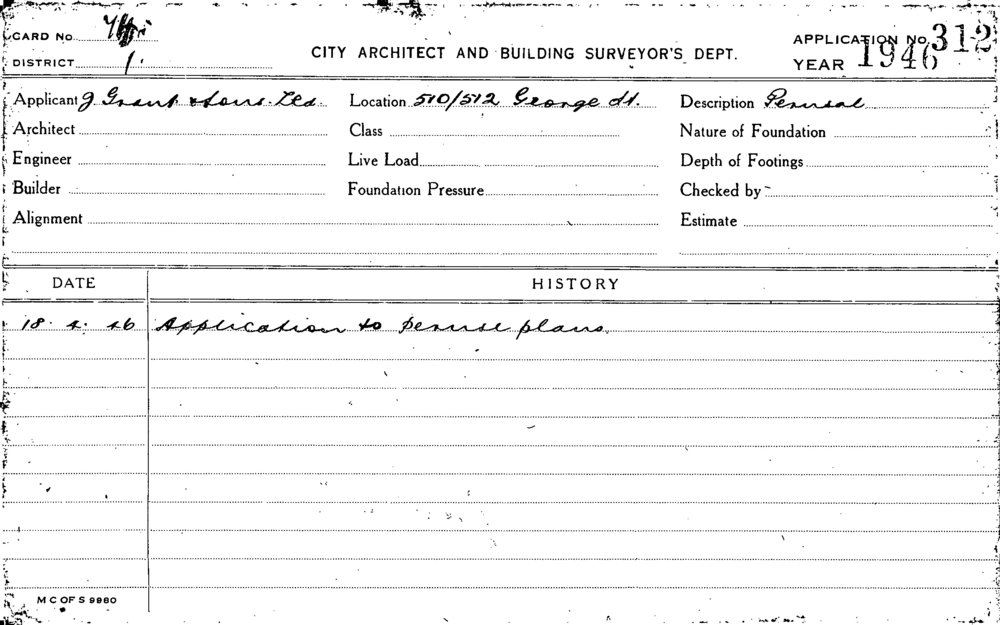 CARD NO.
DISTRICT 1.
CITY ARCHITECT AND BUILDING SURVEYOR'S DEPT.
APPLICATION NO. 312
YEAR 1946
Applicant J Grant & Sons. Ltd. Location 510/512 George St. Description Perusal
Architect Class Nature of Foundation
Engineer Live Load Depth of Footings
Builder Foundation Pressure Checked by
Alignment Estimate
DATE HISTORY
18. 4. 46 Application to peruse plans.
M C OF S 9980